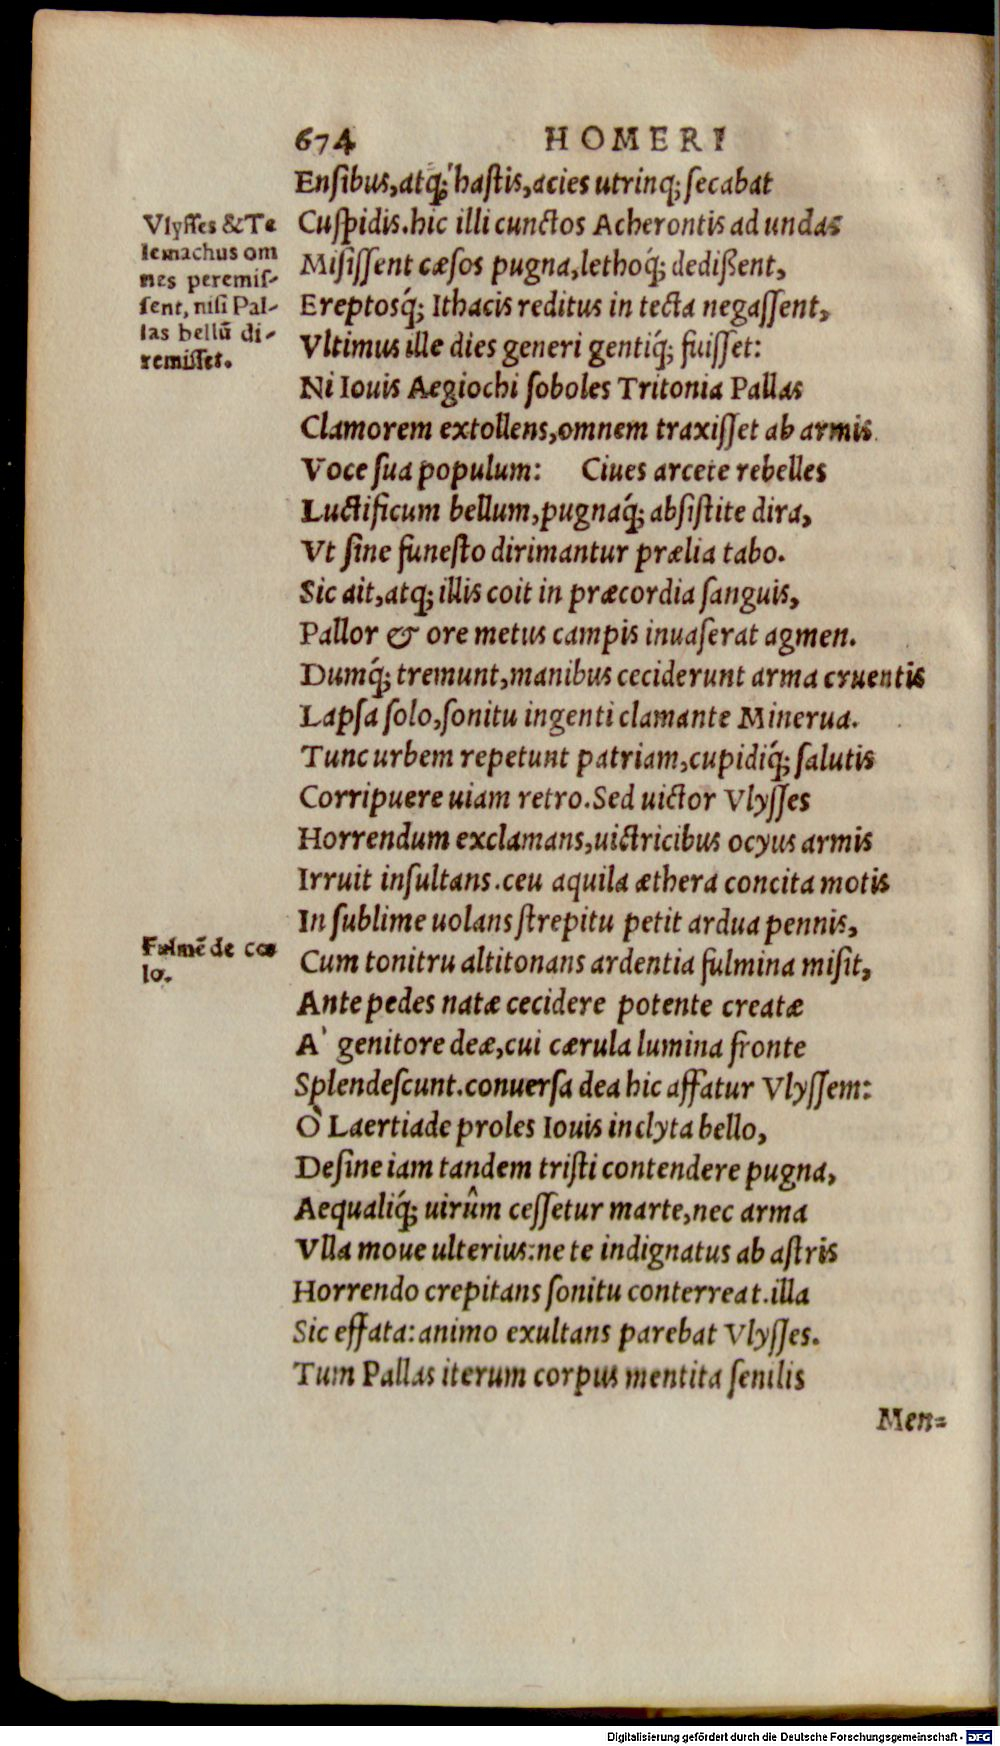 674 HOMERI
Ensibus, atq;́ hastis, acies utrinq; secabat
Cuspidis. hic illi cunctos Acherontis ad undas
Misissent cæsos pugna, lethoq́; dedißent,
Ereptosq́; Ithacis reditus in tecta negassent,
Vltimus ille dies generi gentiq́; fuisset:
Ni Iouis Aegiochi soboles Tritonia Pallas
Clamorem extollens, omnem traxisset ab armis
Voce sua populum: Ciues arcete rebelles
Luctificum bellum, pugnaq́; absistite dira,
Vt sine funesto dirimantur prælia tabo.
Sic ait, atq; illis coit in præcordia sanguis,
Pallor & ore metus campis inuaserat agmen.
Dumq́; tremunt, manibus ceciderunt arma cruentis
Lapsa solo, sonitu ingenti clamante Minerua.
Tunc urbem repetunt patriam, cupidiq́; salutis
Corripuere uiam retro. Sed uictor Vlysses
Horrendum exclamans, uictricibus ocyus armis
Irruit insultans. ceu aquila æthera concita motis
In sublime uolans strepitu petit ardua pennis,
Cum tonitru altitonans ardentia fulmina misit,
Ante pedes natæ cecidere potente creatæ
A' genitore deæ, cui cærula lumina fronte
Splendescunt. conuersa dea hic affatur Vlyssem:
Ò Laertiade proles Iouis inclyta bello,
Desine iam tandem tristi contendere pugna,
Aequaliq́; uirûm cessetur marte, nec arma
Vlla moue ulterius: ne te indignatus ab astris
Horrendo crepitans sonitu conterreat. illa
Sic effata: animo exultans parebat Vlysses.
Tum Pallas iterum corpus mentita senilis
Men=
Vlysses & Te
lemachus om
nes peremis-
sent, nisi Pal-
las bellũ di-
remisset.
Fulmẽ de cœ
lo.
Digitalisierung gefördert durch die Deutsche Forschungsgemeinschaft - DFG